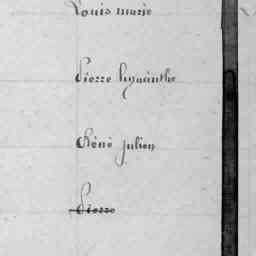 Louis marie
Pierre hyacinthe
Réné julien
Pierre